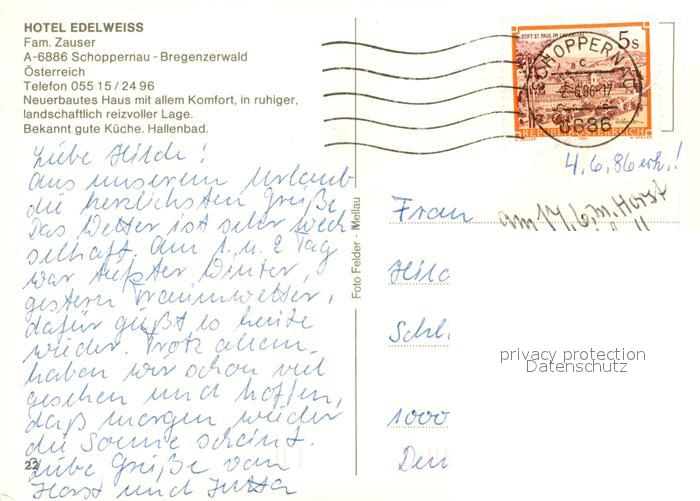 HOTEL EDELWEISS
Fam. Zauser
A-6886 Schoppernau - Bregenzerwald
Österreich
Telefon 055 15 / 24 96
Neuerbautes Haus mit allem Komfort, in ruhiger,
landschaftlich reizvoller Lage.
Bekannt gute Küche. Hallenbad.
Liebe Hilde!
Aus unserem Urlaub
die herzlichsten Grüße.
Das Wetter ist sehr wech
selhaft. Am 1. u. 2 Tag
war tiefster Winter,
gestern Traumwetter,
dafür gießt es heute
wieder. Trotz allem
haben wir schon viel
gesehen und hoffen,
daß morgen wieder
die Sonne scheint.
Liebe Grüße von
Horst und Jutta
22
Foto Felder - Mellau
STIFT ST. PAUL IM LAVANTTAL
5s
REPUBLIK ÖSTERREICH
SCHOPPERNAU
6.86-17
6886
4.6.86 erh.!
am 14/6. m. Horst
Frau
Hild
Schl
1000
privacy protection
Datenschutz